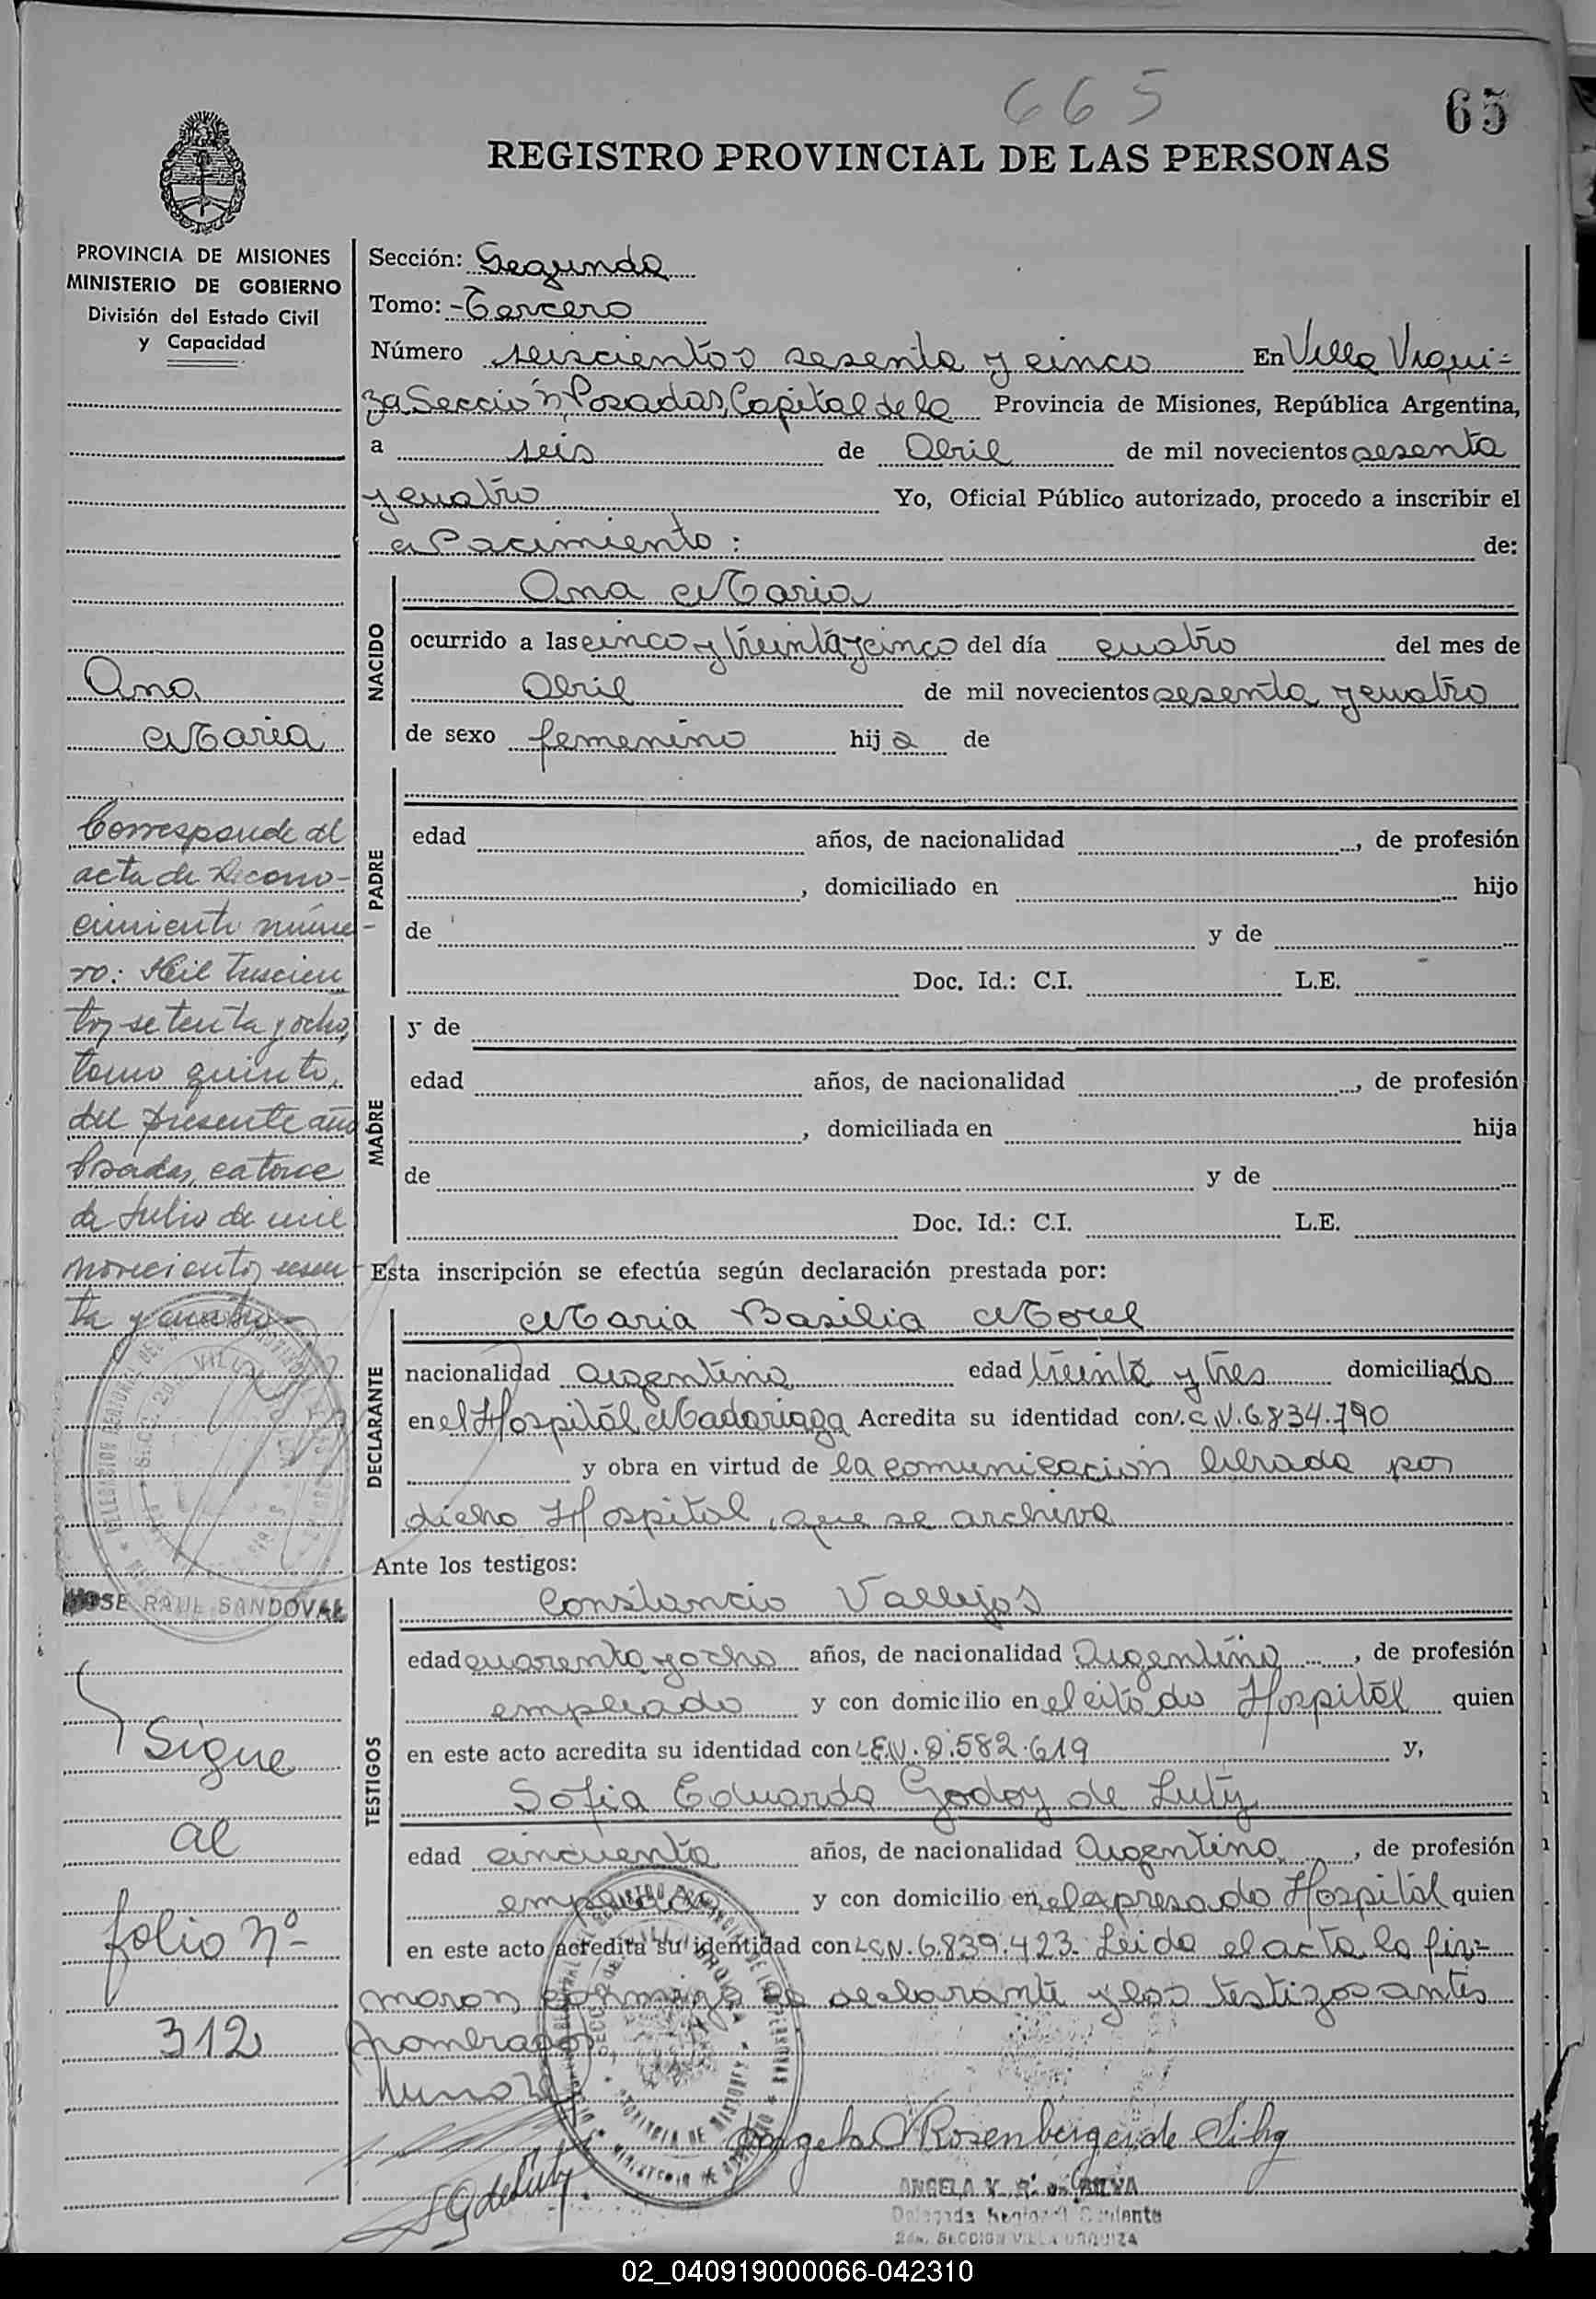 665
65
REGISTRO PROVINCIAL DE LAS PERSONAS
PROVINCIA DE MISIONES
MINISTERIO DE GOBIERNO
División del Estado Civil
y Capacidad
Ana
Maria
Corresponde al
acta de Recono-
cimiento núme-
ro: Mil trescien
tos setenta y ocho,
tomo quinto,
del presente año
Posadas, catorce
de Julio de mil
novecientos sesen
ta y cuatro-
JOSE RAUL SANDOVAL
Sigue
al
folio Nº
312
Sección: Segunda
Tomo: -Tercero
Número seiscientos sesenta y cinco En Villa Urqui=
za Sección, Posadas, Capital de la Provincia de Misiones, República Argentina,
a seis de Abril de mil novecientos sesenta
y cuatro Yo, Oficial Público autorizado, procedo a inscribir el
Nacimiento: de:
NACIDO
Ana Maria
ocurrido a las cinco y treinta y cinco del día cuatro del mes de
Abril de mil novecientos sesenta y cuatro
de sexo femenino hij a de
PADRE
edad años, de nacionalidad , de profesión
, domiciliado en hijo
de y de
Doc. Id.: C.I. L.E.
MADRE
y de
edad años, de nacionalidad , de profesión
, domiciliada en hija
de y de
Doc. Id.: C.I. L.E.
Esta inscripción se efectúa según declaración prestada por:
DECLARANTE
Maria Basilia Morel
nacionalidad argentina edad treinta y tres domiciliada
en el Hospital Madariaga Acredita su identidad con L.C.N. 6.834.790
y obra en virtud de la comunicacion librada por
dicho Hospital, que se archiva
Ante los testigos:
TESTIGOS
Constancio Vallejos
edad cuarenta y ocho años, de nacionalidad Argentina , de profesión
empleado y con domicilio en el citado Hospital quien
en este acto acredita su identidad con L.E.N. 582.619 y,
Sofia Eduarda Godoy de Luty
edad cincuenta años, de nacionalidad Argentina , de profesión
empleada y con domicilio en el expresado Hospital quien
en este acto acredita su identidad con L.C.N. 6.839.423. Leida el acta, la fir=
maron conmigo la declarante y los testigos antes
nombrados
SG de Luty
Angela V Rosenberger de Silva
ANGELA V. R. DE SILVA
Delegada Regional
2da. SECCION VILLA URQUIZA
02_040919000066-042310